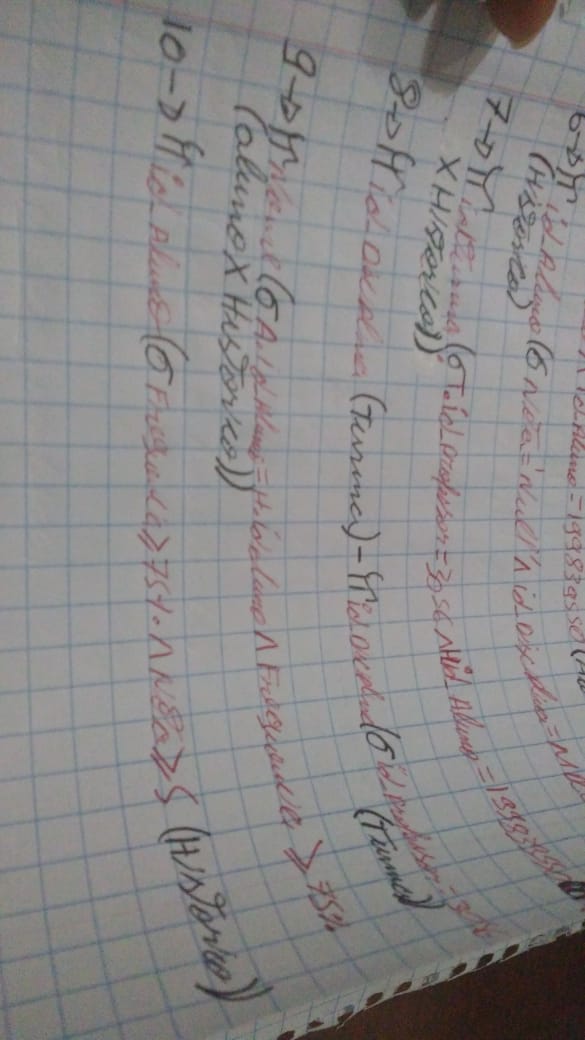 idAluno = 1998395501
6 -> π id_Aluno (σ Nota = 'Null' ∧ id_Disciplina =
(Historico)
7 -> π idTurma (σ T.id_professor = 3056 ∧ H.id_Aluno =
X Historico))
8 -> π id_Disciplina (Turma) - π id_Disciplina (σ id_professor =
(Turma))
9 -> π Nome (σ A.idAluno = H.idaluno ∧ Frequencia ≥ 75%
(aluno X Historico))
10 -> π id_Aluno (σ Frequencia ≥ 75% ∧ Nota ≥ 5 (Historico))